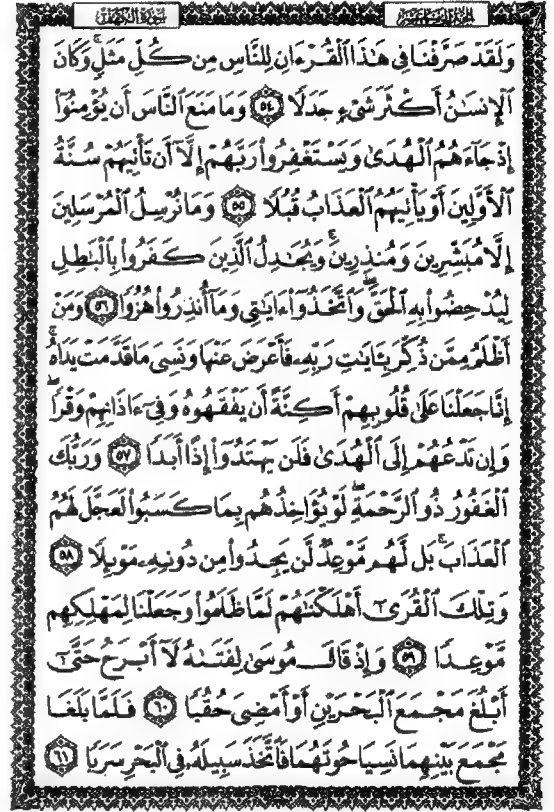 سورة الكهف
الجزء الخامس عشر
وَلَقَدْ صَرَّفْنَا فِى هَٰذَا ٱلْقُرْءَانِ لِلنَّاسِ مِن كُلِّ مَثَلٍ ۚ وَكَانَ
ٱلْإِنسَٰنُ أَكْثَرَ شَىْءٍ جَدَلًا ﴿٥٤﴾ وَمَا مَنَعَ ٱلنَّاسَ أَن يُؤْمِنُوٓا۟
إِذْ جَآءَهُمُ ٱلْهُدَىٰ وَيَسْتَغْفِرُوا۟ رَبَّهُمْ إِلَّآ أَن تَأْتِيَهُمْ سُنَّةُ
ٱلْأَوَّلِينَ أَوْ يَأْتِيَهُمُ ٱلْعَذَابُ قُبُلًا ﴿٥٥﴾ وَمَا نُرْسِلُ ٱلْمُرْسَلِينَ
إِلَّا مُبَشِّرِينَ وَمُنذِرِينَ ۚ وَيُجَٰدِلُ ٱلَّذِينَ كَفَرُوا۟ بِٱلْبَٰطِلِ
لِيُدْحِضُوا۟ بِهِ ٱلْحَقَّ ۖ وَٱتَّخَذُوٓا۟ ءَايَٰتِى وَمَآ أُنذِرُوا۟ هُزُوًا ﴿٥٦﴾ وَمَنْ
أَظْلَمُ مِمَّن ذُكِّرَ بِـَٔايَٰتِ رَبِّهِۦ فَأَعْرَضَ عَنْهَا وَنَسِىَ مَا قَدَّمَتْ يَدَاهُ ۚ
إِنَّا جَعَلْنَا عَلَىٰ قُلُوبِهِمْ أَكِنَّةً أَن يَفْقَهُوهُ وَفِىٓ ءَاذَانِهِمْ وَقْرًا ۖ
وَإِن تَدْعُهُمْ إِلَى ٱلْهُدَىٰ فَلَن يَهْتَدُوٓا۟ إِذًا أَبَدًا ﴿٥٧﴾ وَرَبُّكَ
ٱلْغَفُورُ ذُو ٱلرَّحْمَةِ ۖ لَوْ يُؤَاخِذُهُم بِمَا كَسَبُوا۟ لَعَجَّلَ لَهُمُ
ٱلْعَذَابَ ۚ بَل لَّهُم مَّوْعِدٌ لَّن يَجِدُوا۟ مِن دُونِهِۦ مَوْئِلًا ﴿٥٨﴾
وَتِلْكَ ٱلْقُرَىٰٓ أَهْلَكْنَٰهُمْ لَمَّا ظَلَمُوا۟ وَجَعَلْنَا لِمَهْلِكِهِم
مَّوْعِدًا ﴿٥٩﴾ وَإِذْ قَالَ مُوسَىٰ لِفَتَىٰهُ لَآ أَبْرَحُ حَتَّىٰٓ
أَبْلُغَ مَجْمَعَ ٱلْبَحْرَيْنِ أَوْ أَمْضِىَ حُقُبًا ﴿٦٠﴾ فَلَمَّا بَلَغَا
مَجْمَعَ بَيْنِهِمَا نَسِيَا حُوتَهُمَا فَٱتَّخَذَ سَبِيلَهُۥ فِى ٱلْبَحْرِ سَرَبًا ﴿٦١﴾